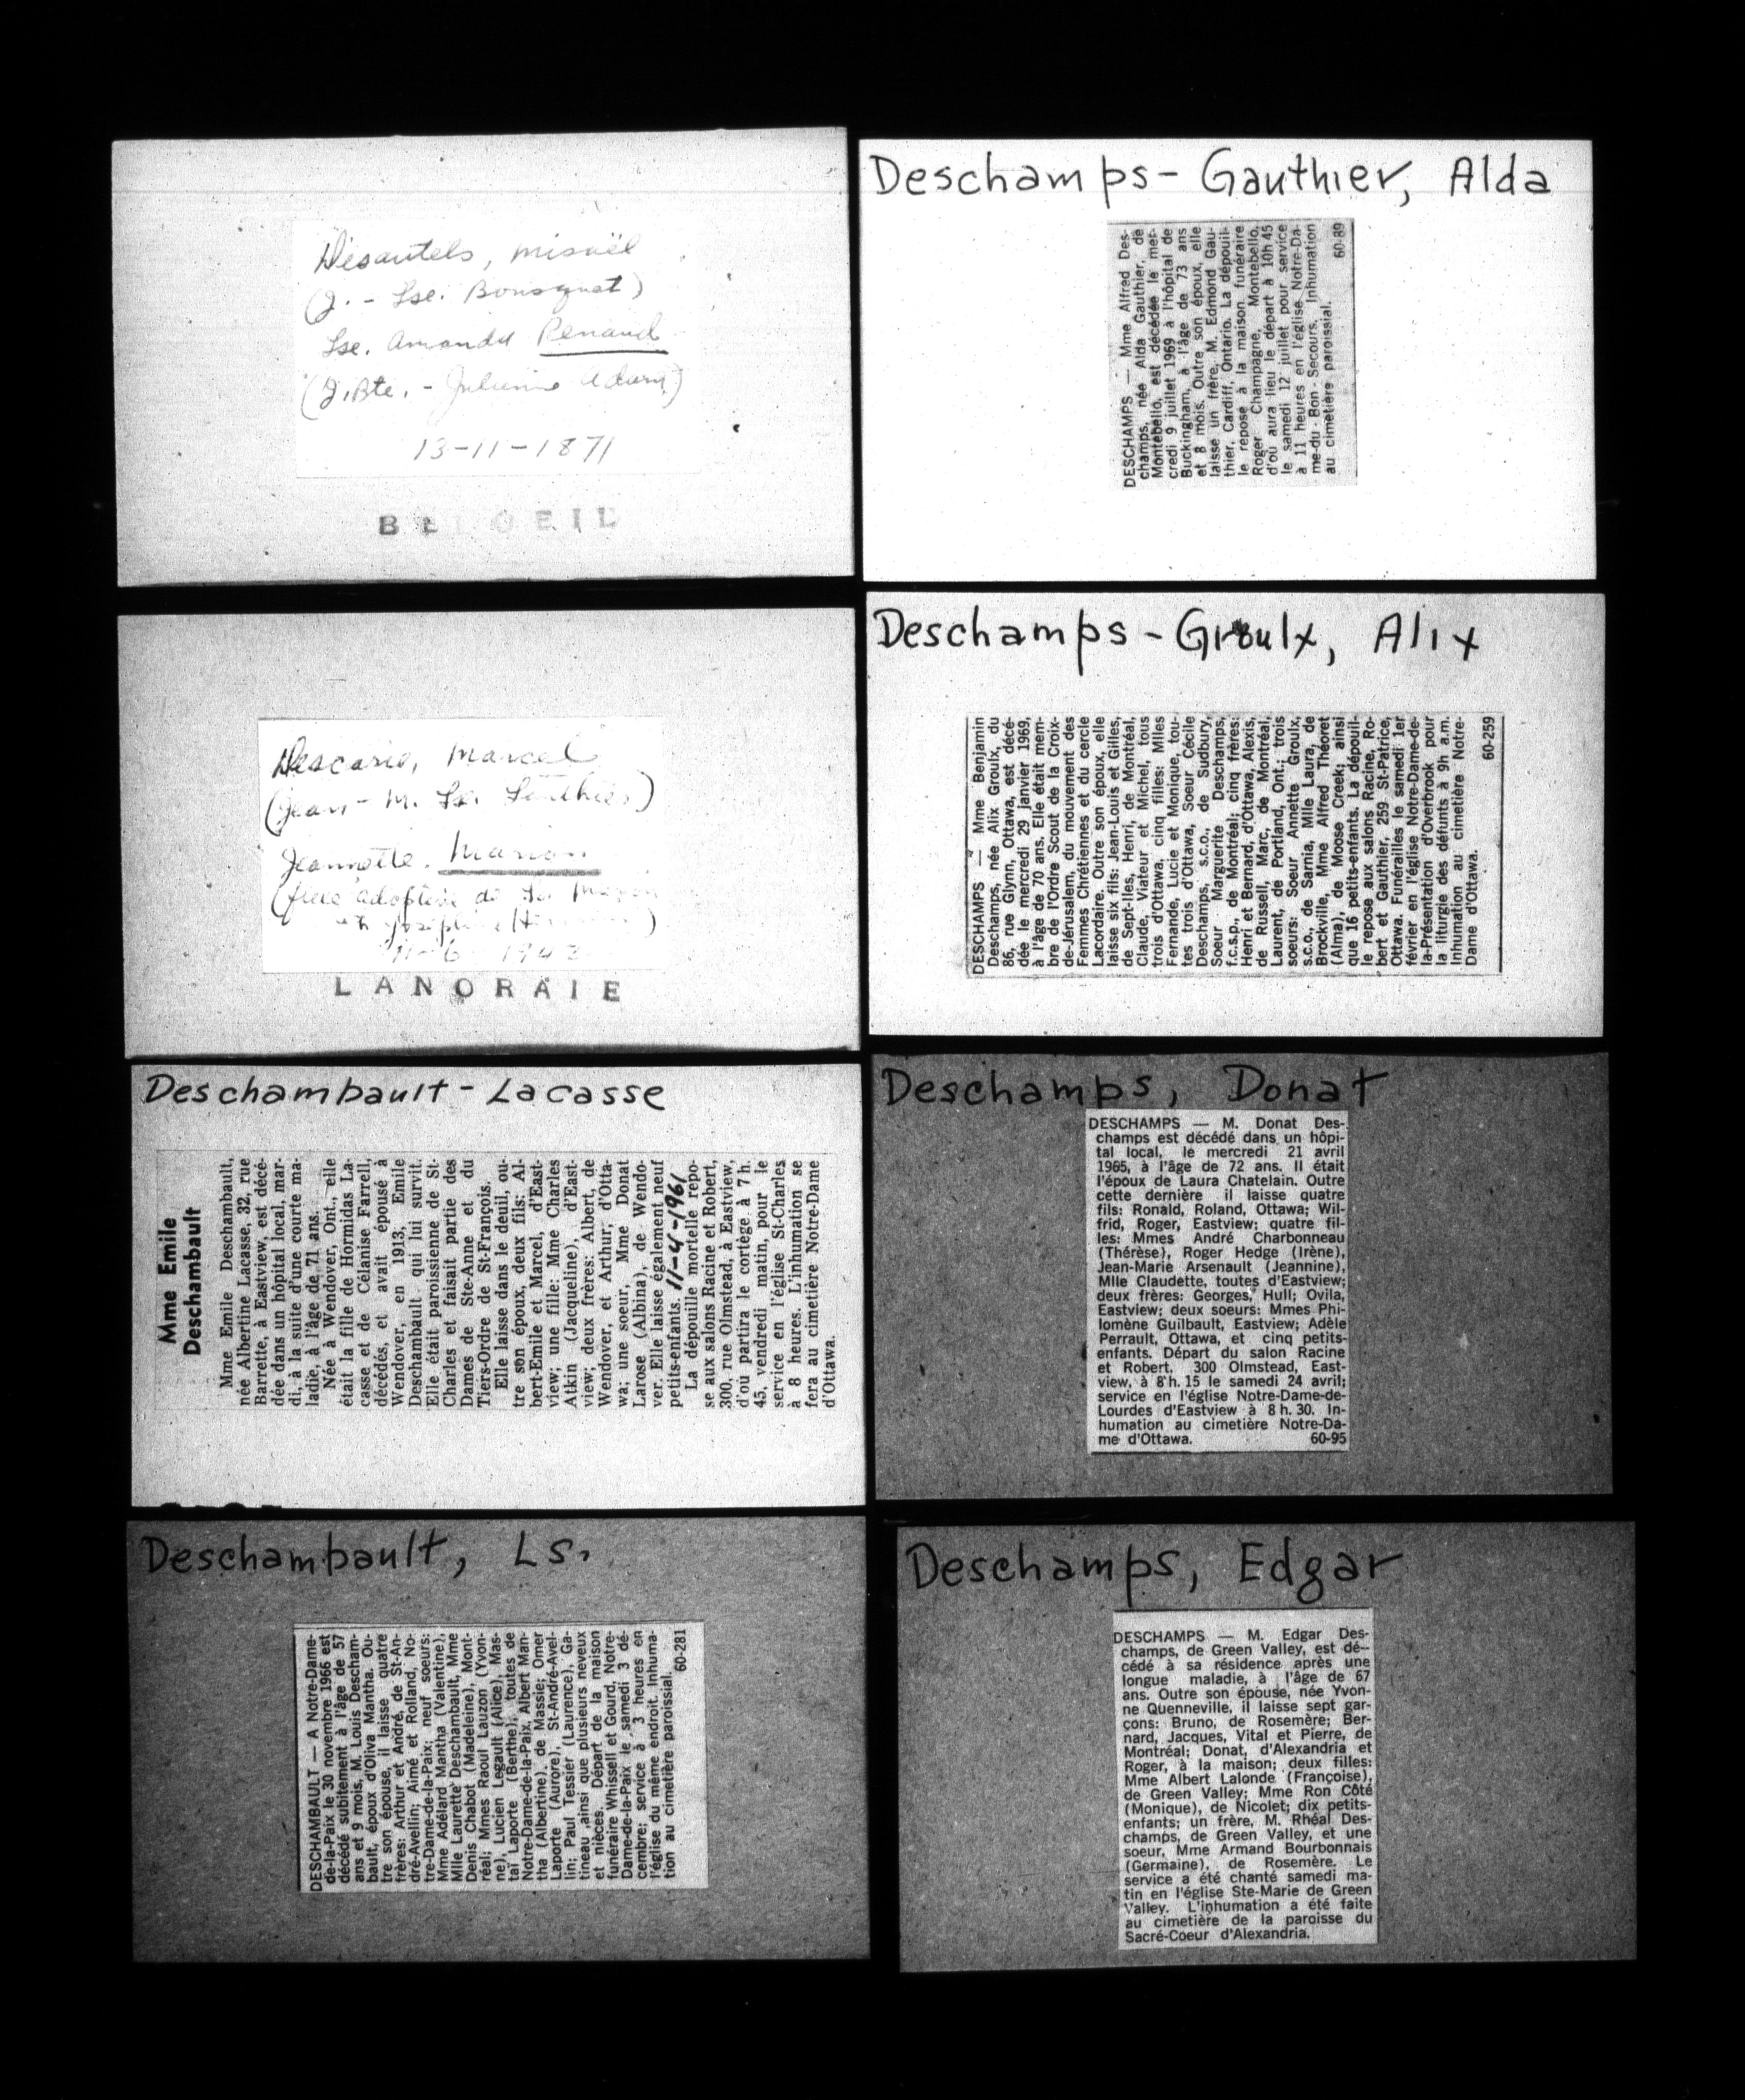 Désautels, Misaël
(J. - Lse. Bousquet)
Lse. Amanda Renaud
(J.Bte. - Julienne Adam)
13-11-1871
BELOEIL
Descaris, Marcel
(Jean - M. Ls.
Jeannette. Marion
(fille adoptive de
LANORAIE
Deschambault - Lacasse
Mme Emile
Deschambault
Mme Emile Deschambault,
née Albertine Lacasse, 32, rue
Barrette, à Eastview, est décé-
dée dans un hôpital local, mar-
di, à la suite d'une courte ma-
ladie, à l'âge de 71 ans.
Née à Wendover, Ont., elle
était la fille de Hormidas La-
casse et de Célanise Farrell,
décédés, et avait épousé à
Wendover, en 1913, Emile
Deschambault qui lui survit.
Elle était paroissienne de St-
Charles et faisait partie des
Dames de Ste-Anne et du
Tiers-Ordre de St-François.
Elle laisse dans le deuil, ou-
tre son époux, deux fils: Al-
bert-Emile et Marcel, d'East-
view; une fille: Mme Charles
Atkin (Jacqueline), d'East-
view; deux frères: Albert, de
Wendover, et Arthur, d'Otta-
wa; une soeur, Mme Donat
Larose (Albina), de Wendo-
ver. Elle laisse également neuf
petits-enfants. 11-4-1961
La dépouille mortelle repo-
se aux salons Racine et Robert,
300, rue Olmstead, à Eastview,
d'où partira le cortège à 7 h.
45, vendredi matin, pour le
service en l'église St-Charles
à 8 heures. L'inhumation se
fera au cimetière Notre-Dame
d'Ottawa.
Deschambault, Ls.
DESCHAMBAULT — A Notre-Dame-
de-la-Paix le 30 novembre 1966 est
décédé subitement à l'âge de 57
ans et 9 mois, M. Louis Descham-
bault, époux d'Oliva Mantha. Ou-
tre son épouse, il laisse quatre
frères: Arthur et André, de St-An-
dré-Avellin; Aimé et Rolland, No-
tre-Dame-de-la-Paix; neuf soeurs:
Mme Adélard Mantha (Valentine),
Mlle Laurette Deschambault, Mme
Denis Chabot (Madeleine), Mont-
réal; Mmes Raoul Lauzon (Yvon-
ne), Lucien Legault (Alice), Mas-
taï Laporte (Berthe), toutes de
Notre-Dame-de-la-Paix, Albert Man-
tha (Albertine), de Massie; Omer
Laporte (Aurore), St-André-Avel-
lin; Paul Tessier (Laurence), Ga-
tineau ,ainsi que plusieurs neveux
et nièces. Départ de la maison
funéraire Whissell et Gourd, Notre-
Dame-de-la-Paix le samedi 3 dé-
cembre; service à 3 heures en
l'église du même endroit. Inhuma-
tion au cimetière paroissial.
60-281
Deschamps - Gauthier, Alda
DESCHAMPS — Mme Alfred Des-
champs, née Alda Gauthier, de
Montebello, est décédée le mer-
credi 9 juillet 1969 à l'hôpital de
Buckingham, à l'âge de 73 ans
et 8 mois. Outre son époux, elle
laisse un frère, M. Edmond Gau-
thier, Cardiff, Ontario. La dépouil-
le repose à la maison funéraire
Roger Champagne, Montebello,
d'où aura lieu le départ à 10h 45
le samedi 12 juillet pour service
à 11 heures en l'église Notre-Da-
me-du - Bon - Secours. Inhumation
au cimetière paroissial.
60-89
Deschamps - Groulx, Alix
DESCHAMPS — Mme Benjamin
Deschamps, née Alix Groulx, du
86, rue Glynn, Ottawa, est décé-
dée le mercredi 29 janvier 1969,
à l'âge de 70 ans. Elle était mem-
bre de l'Ordre Scout de la Croix-
de-Jérusalem, du mouvement des
Femmes Chrétiennes et du cercle
Lacordaire. Outre son époux, elle
laisse six fils: Jean-Louis et Gilles,
de Sept-Iles, Henri, de Montréal,
Claude, Viateur et Michel, tous
trois d'Ottawa, cinq filles: Mlles
Fernande, Lucie et Monique, tou-
tes trois d'Ottawa, Soeur Cécile
Deschamps, s.c.o., de Sudbury,
Soeur Marguerite Deschamps,
f.c.s.p., de Montréal; cinq frères:
Henri et Bernard, d'Ottawa, Alexis,
de Russell, Marc, de Montréal,
Laurent, de Portland, Ont.; trois
soeurs: Soeur Annette Groulx,
s.c.o., de Sarnia, Mlle Laura, de
Brockville, Mme Alfred Théoret
(Alma), de Moose Creek; ainsi
que 16 petits-enfants. La dépouil-
le repose aux salons Racine, Ro-
bert et Gauthier, 259 St-Patrice,
Ottawa. Funérailles le samedi 1er
février en l'église Notre-Dame-de-
la-Présentation d'Overbrook pour
la liturgie des défunts à 9h a.m.
Inhumation au cimetière Notre-
Dame d'Ottawa.
60-259
Deschamps, Donat
DESCHAMPS — M. Donat Des-
champs est décédé dans un hôpi-
tal local, le mercredi 21 avril
1965, à l'âge de 72 ans. Il était
l'époux de Laura Chatelain. Outre
cette dernière il laisse quatre
fils: Ronald, Roland, Ottawa; Wil-
frid, Roger, Eastview; quatre fil-
les: Mmes André Charbonneau
(Thérèse), Roger Hedge (Irène),
Jean-Marie Arsenault (Jeannine),
Mlle Claudette, toutes d'Eastview;
deux frères: Georges, Hull; Ovila,
Eastview; deux soeurs: Mmes Phi-
lomène Guilbault, Eastview; Adèle
Perrault, Ottawa, et cinq petits-
enfants. Départ du salon Racine
et Robert, 300 Olmstead, East-
view, à 8 h. 15 le samedi 24 avril;
service en l'église Notre-Dame-de-
Lourdes d'Eastview à 8 h. 30. In-
humation au cimetière Notre-Da-
me d'Ottawa. 60-95
Deschamps, Edgar
DESCHAMPS — M. Edgar Des-
champs, de Green Valley, est dé-
cédé à sa résidence après une
longue maladie, à l'âge de 67
ans. Outre son épouse, née Yvon-
ne Quenneville, il laisse sept gar-
çons: Bruno, de Rosemère; Ber-
nard, Jacques, Vital et Pierre, de
Montréal; Donat, d'Alexandria et
Roger, à la maison; deux filles:
Mme Albert Lalonde (Françoise),
de Green Valley; Mme Ron Côté
(Monique), de Nicolet; dix petits-
enfants; un frère, M. Rhéal Des-
champs, de Green Valley, et une
soeur, Mme Armand Bourbonnais
(Germaine), de Rosemère. Le
service a été chanté samedi ma-
tin en l'église Ste-Marie de Green
Valley. L'inhumation a été faite
au cimetière de la paroisse du
Sacré-Coeur d'Alexandria.